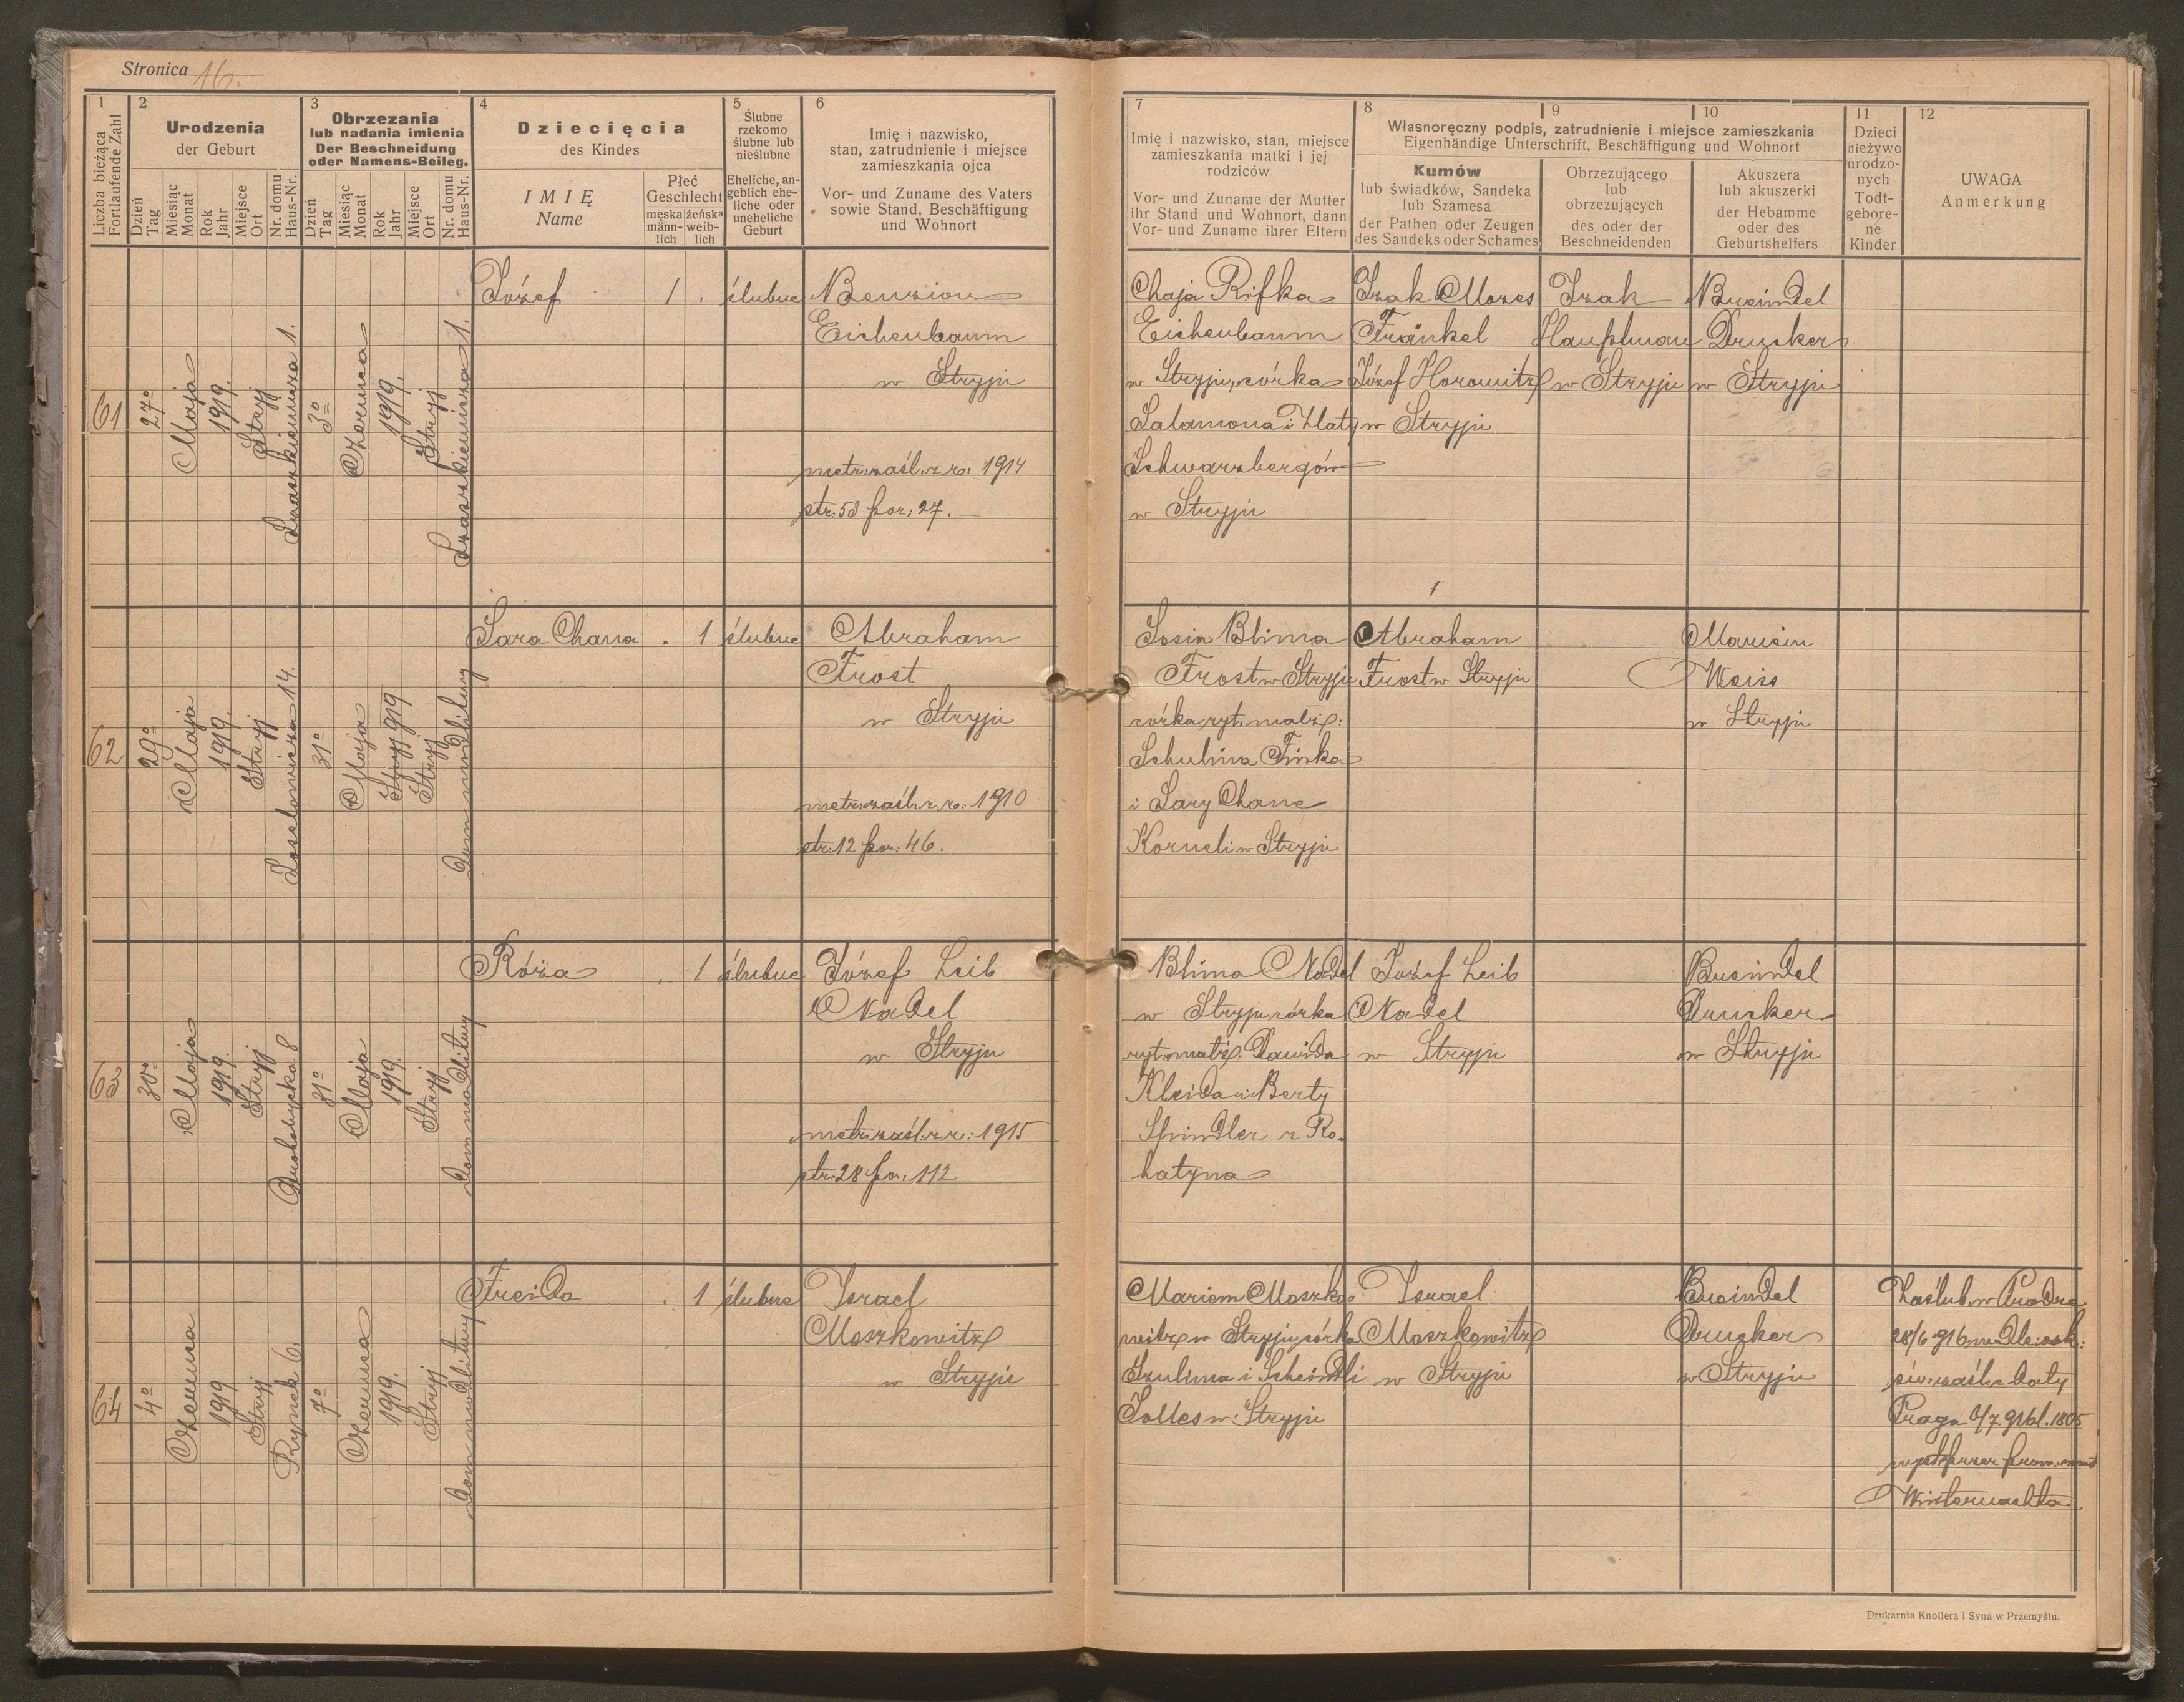 Stronica 16.
1
Liczba bieżąca
Fortlaufende Zahl
2
Urodzenia
der Geburt
Dzień
Tag
Miesiąc
Monat
Rok
Jahr
Miejsce
Ort
Nr. domu
Haus-Nr.
3
Obrzezania
lub nadania imienia
Der Beschneidung
oder Namens-Beileg.
Dzień
Tag
Miesiąc
Monat
Rok
Jahr
Miejsce
Ort
Nr. domu
Haus-Nr.
4
Dziecięcia
des Kindes
IMIĘ
Name
Płeć
Geschlecht
męska
männ-
lich
żeńska
weib-
lich
5
Ślubne
rzekomo
ślubne lub
nieślubne
Eheliche, an-
geblich ehe-
liche oder
uneheliche
Geburt
6
Imię i nazwisko,
stan, zatrudnienie i miejsce
zamieszkania ojca
Vor- und Zuname des Vaters
sowie Stand, Beschäftigung
und Wohnort
7
Imię i nazwisko, stan, miejsce
zamieszkania matki i jej
rodziców
Vor- und Zuname der Mutter
ihr Stand und Wohnort, dann
Vor- und Zuname ihrer Eltern
8
9
10
Własnoręczny podpis, zatrudnienie i miejsce zamieszkania
Eigenhändige Unterschrift, Beschäftigung und Wohnort
Kumów
lub świadków, Sandeka
lub Szamesa
der Pathen oder Zeugen
des Sandeks oder Schames
Obrzezującego
lub
obrzezujących
des oder der
Beschneidenden
Akuszera
lub akuszerki
der Hebamme
oder des
Geburtshelfers
11
Dzieci
nieżywo
urodzo-
nych
Todt-
gebore-
ne
Kinder
12
UWAGA
Anmerkung
61
27o
Maja
1919.
Stryj
1.
3o
Czerwca
1919.
Stryj
1.
Józef
1 .
ślubne
Benzion
Eichenbaum
w Stryju
metr: zaśl: z r: 1914
str: 53 poz: 27.
Chaja Rifka
Eichenbaum
w Stryju, córka
Salamona i Złaty
Schwarzbergów
w Stryju
Izak Mozes
Fränkel
Józef Horowitz
w Stryju
Izak
Hauptman
w Stryju
Breindel
Drucker
w Stryju
62
29o
Maja
1919.
Stryj
14.
31o
Maja
Stryj 919
Stryj
Dom modlitwy
Sara Chana
. 1
ślubne
Abraham
Frost
w Stryju
metr: zaśl: z r: 1910
str: 12 poz: 46.
Sosia Blima
Frost w Stryju
córka ryt. małż:
Schulima Finka
i Sary Chane
Korneli w Stryju
Abraham
Frost w Stryju
Weiss
w Stryju
63
30o
Maja
1919.
Stryj
Drohobycka 8
31o
Maja
1919.
Stryj
Dom modlitwy
Róża
. 1
ślubne
Józef Leib
Nadel
w Stryju
metr: zaśl: z r: 1915
str: 28 poz: 112
Blima Nadel
w Stryju, córka
ryt. małż: Dawida
Kleida i Berty
Spindler z Ro-
hatyna
Józef Leib
Nadel
w Stryju
Breindel
Drucker
w Stryju
64
4o
Czerwca
1919
Stryj
Rynek 6.
7o
Czerwca
1919.
Stryj
Dom modlitwy
Freida
. 1
ślubne
Israel
Moszkowitz
w Stryju
Mariem Moszko-
witz w Stryju, córka
Szulima i Scheindli
Solles w Stryju
Israel
Moszkowitz
w Stryju
Breindel
Drucker
w Stryju
Zaślub. w Pradze
28/6 916
zaśl: z daty
Praga 6/7 916 l. 1805
Winternachta
Drukarnia Knollera i Syna w Przemyślu.